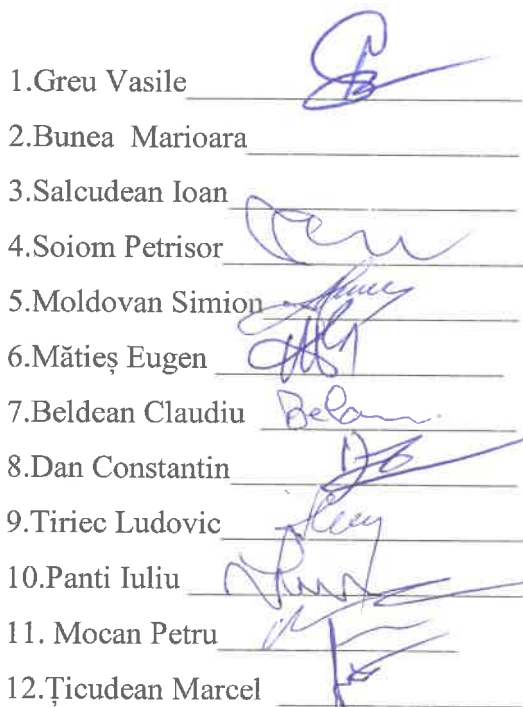 1.Greu Vasile
2.Bunea Marioara
3.Salcudean Ioan
4.Soiom Petrisor
5.Moldovan Simion
6.Mătieș Eugen
7.Beldean Claudiu
8.Dan Constantin
9.Tiriec Ludovic
10.Panti Iuliu
11. Mocan Petru
12.Țicudean Marcel